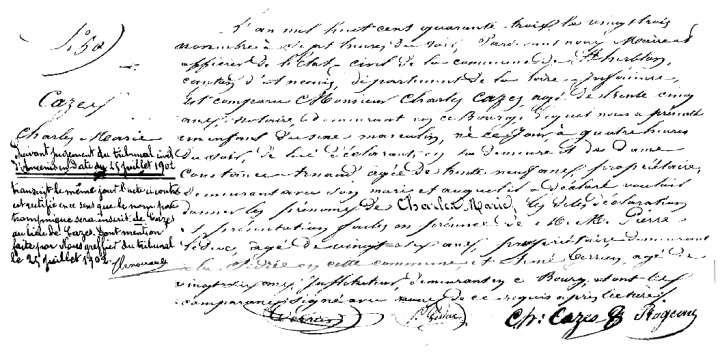 N° 50
Cazes
Charles Marie
Suivant jugement du tribunal civil
d'Ancenis en date du 25 juillet 1902
transcrit le même jour l'acte ci contre
est rectifié en ce sens que le nom patronymique sera inscrit de Cazes
au lieu de Cazes. Dont mention
faite par Nous greffier du tribunal
le 25 juillet 1902
L'an mil huit cent quarante trois le vingt trois
novembre à sept heures du soir, Pardevant nous Maire et
officier de l'Etat civil de la commune de St Herblon,
canton d'Ancenis, département de la Loire inférieure,
Est comparu Monsieur Charles Cazes, agé de trente cinq
ans, notaire, demeurant en ce Bourg, lequel nous a présenté
un enfant du sexe masculin, né ce jour à quatre heures
du soir, de lui déclarant, en sa demeure et de Dame
Constance agée de trente neuf ans, propriétaire,
demeurant avec son mari et auquel il a déclaré vouloir
donner les prénoms de Charles Marie, les dites déclaration
et présentation faites en présence de M. M. Pierre
Leduc, agé de vingt ans, propriétaire demeurant
à la en cette commune, et René Terrien, agé de
vingt ans, Instituteur, demeurant en ce Bourg, et ont les
comparans signé avec nous de ce requis après lecture.
Terrien Leduc Ch: Cazes Rogeau